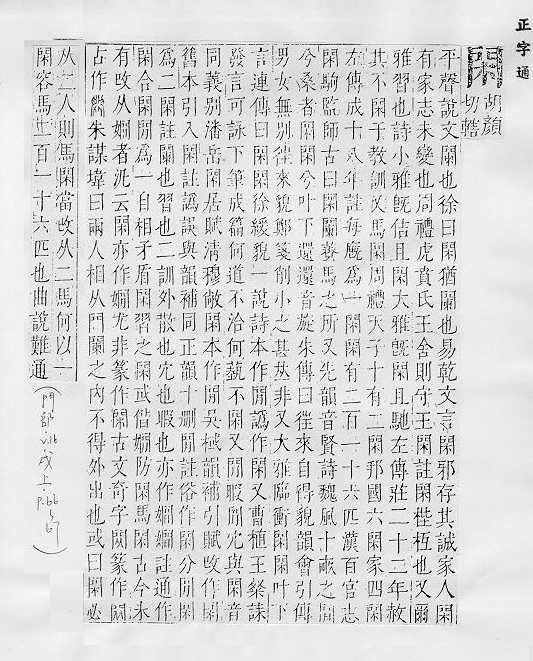 正字通
閑
胡顏
切
平聲說文闌也徐曰閑猶闌也易乾文言閑邪存其誠家人閑
有家志未變也周禮虎賁氏王舍則守王閑註閑梐枑也又爾
雅習也詩小雅旣佶且閑大雅旣閑且馳左傳莊二十二年赦
其不閑于教訓又馬閑周禮天子十有二閑邦國六閑家四閑
左傳成十八年註每廏爲一閑閑有二百一十六匹漢百官志
閑駒監師古曰閑闌養馬之所又先韻音賢詩魏風十畝之閒
兮桑者閑閑兮叶下還還音旋朱傳曰徃來自得貌韻會引傳
男女無別徃來貌鄭箋削小之甚𠀤非又大雅臨衝閑閑叶下
言連傳曰閑閑徐緩貌一說詩本作閒譌作閑又曹植王粲誄
發言可詠下筆成篇何道不洽何藝不閑又閒暇閒宂與閑音
同義別潘岳閑居賦淸穆敞閑本作閒吳棫韻補引賦攺作閑
舊本引入閑註譌誤與韻補同正韻十刪閒註俗作閑分閒閑
爲二閑註闌也習也二訓外散也宂也暇也亦作嫺嫻註通作
閑合閑閒爲一自相矛盾閑習之閑或借嫺防閑馬閑古今未
有攺从嫺者泥云閑亦作嫺尤非篆作閑古文奇字闕篆作
古作 朱謀㙔曰兩人相从門闌之內不得外出也或曰閑必
从二人則馬閑當攺从二馬何以一
閑容馬二百一十六匹也曲說難通
(門部 戌上
p.66
67)